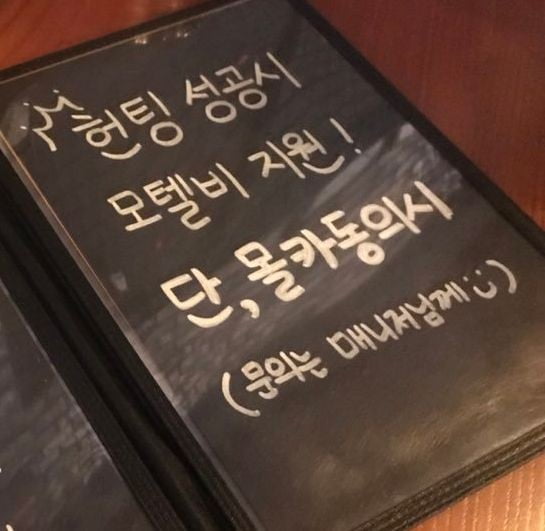 헌팅 성공시
모텔비 지원!
단, 몰카동의시
(문의는 매니저님께:))